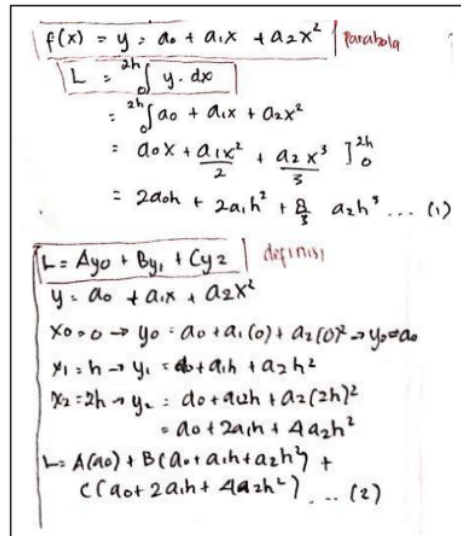 f(x) = y = a0 + a1x + a2x² Parabola
L = 0∫2h y. dx
= 0∫2h a0 + a1x + a2x²
= a0x + a1x²/2 + a2x³/3 ]0 2h
= 2a0h + 2a1h² + 8/3 a2h³ ... (1)
L = Ay0 + By1 + Cy2 definisi
y = a0 + a1x + a2x²
x0 = 0 → y0 = a0 + a1(0) + a2(0)² → y0=a0
x1 = h → y1 = a0 + a1h + a2h²
x2 = 2h → y2 = a0 + a12h + a2(2h)²
= a0 + 2a1h + 4a2h²
L = A(a0) + B(a0 + a1h + a2h²) +
C(a0 + 2a1h + 4a2h²) ... (2)